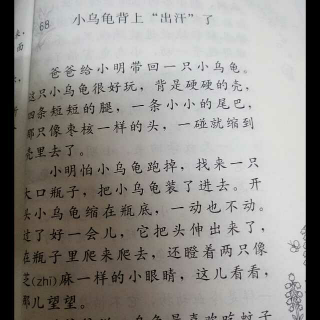 68 小乌龟背上“出汗”了
爸爸给小明带回一只小乌龟。
这只小乌龟很好玩，背是硬硬的壳，
四条短短的腿，一条小小的尾巴，
那只像枣核一样的头，一碰就缩到
壳里去了。
小明怕小乌龟跑掉，找来一只
大口瓶子，把小乌龟装了进去。开
头小乌龟缩在瓶底，一动也不动。
过了好一会儿，它把头伸出来了，
在瓶子里爬来爬去，还瞪着两只像
芝(zhī)麻一样的小眼睛，这儿看看，
那儿望望。
乌龟最喜欢吃蚊子